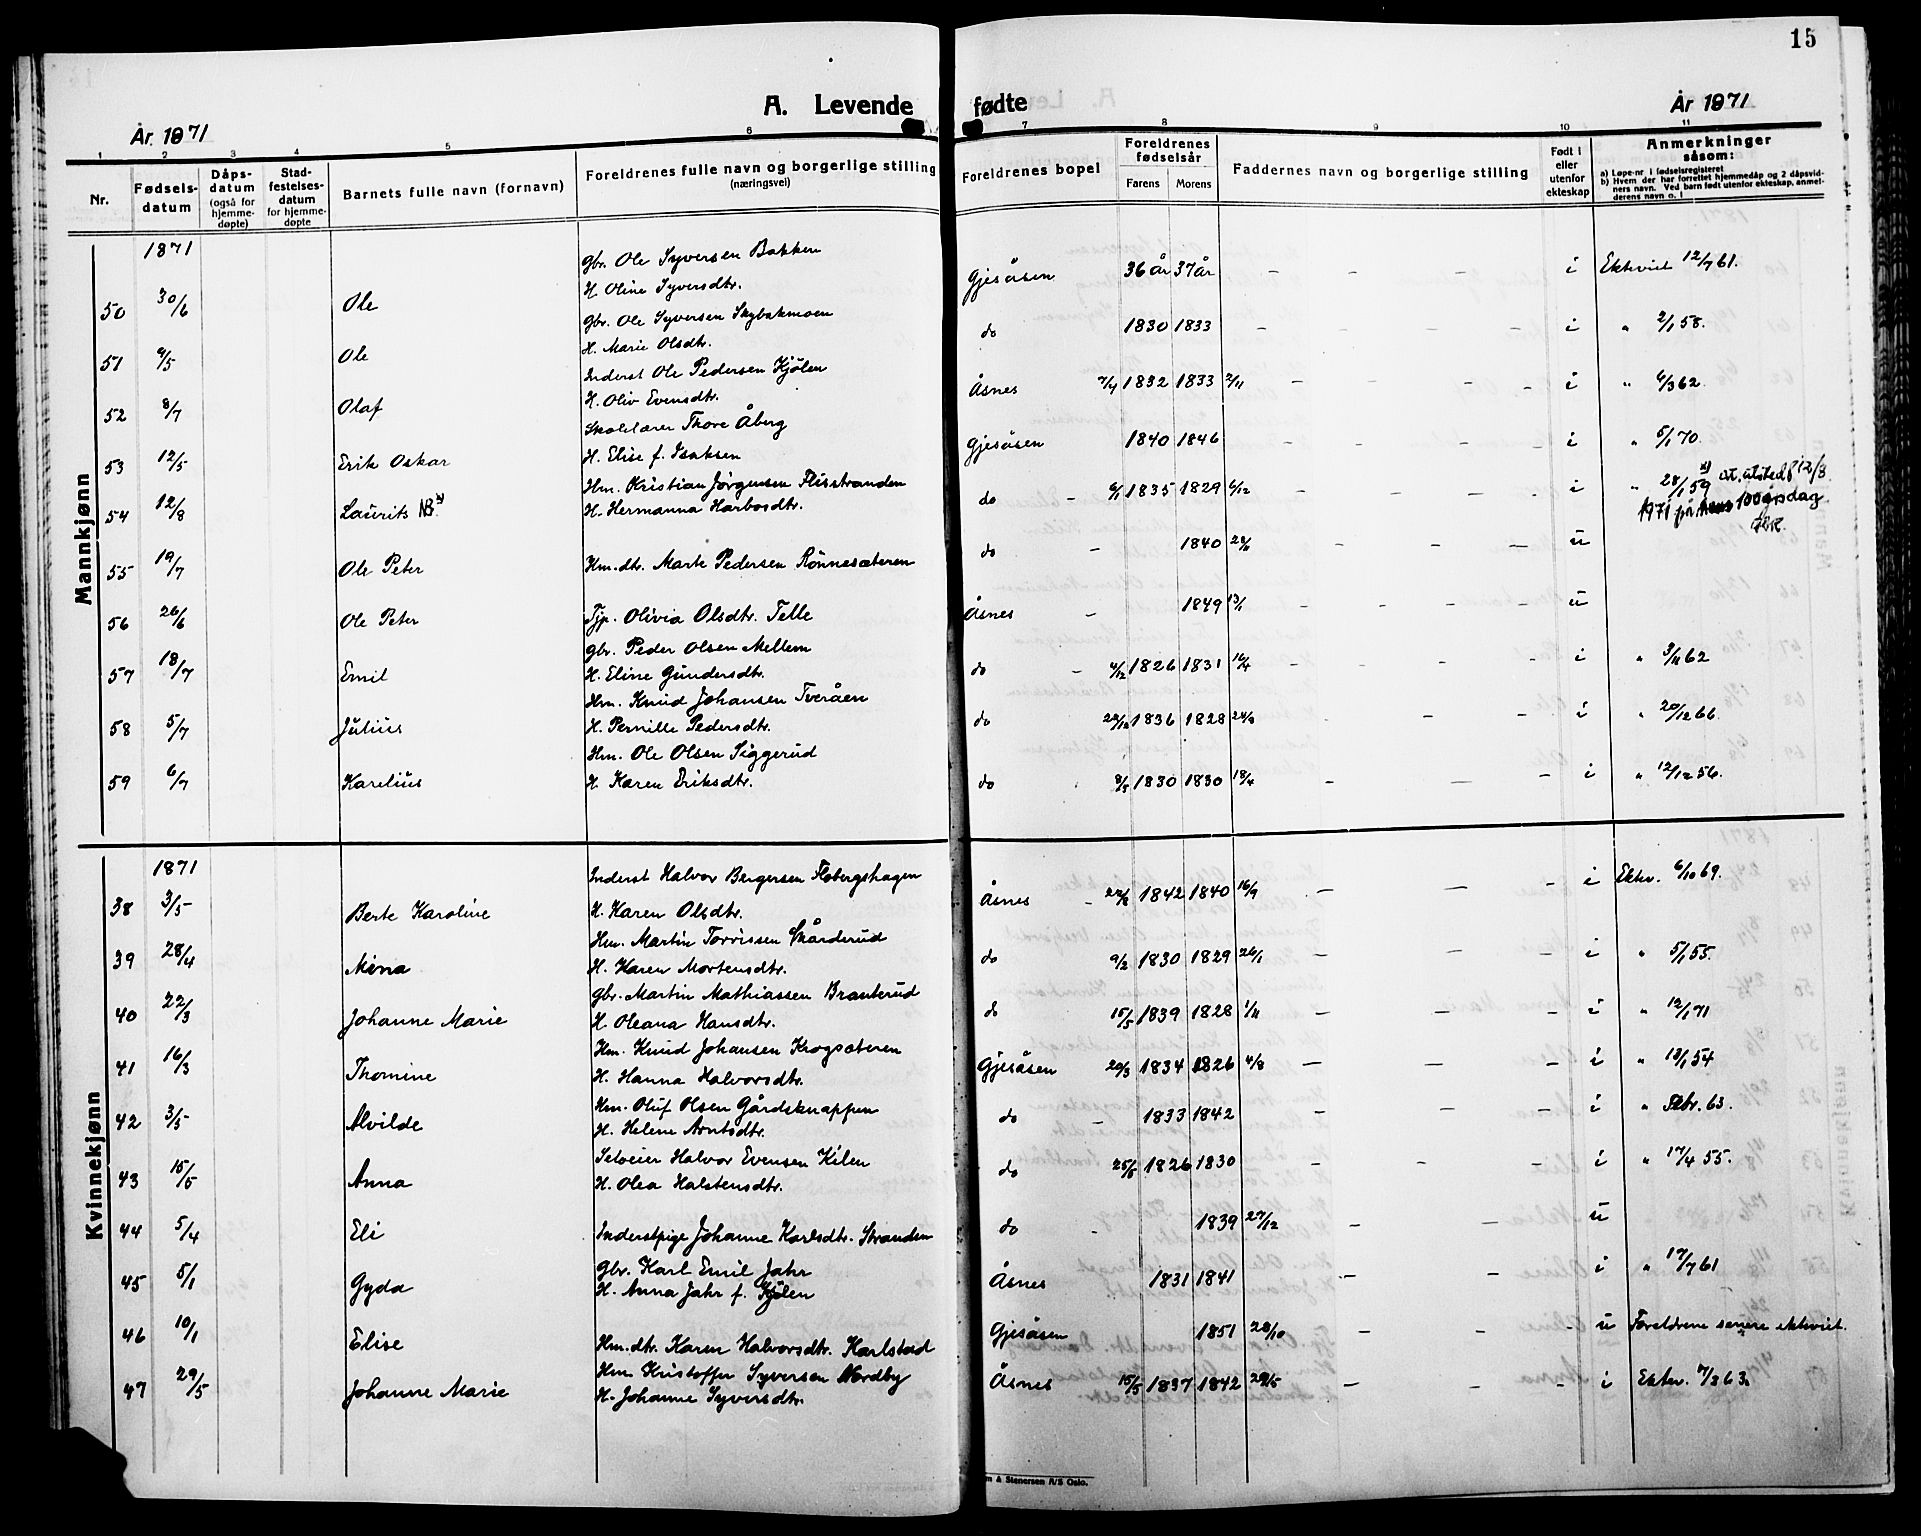 15
A. Levende fødte
År 1871
År 1871
1 2 3 4 5 6 7 8 9 10 11
Nr. Fødsels-datum Dåps-datum (også for hjemme-døpte) Stad-festelses-datum for hjemme-døpte Barnets fulle navn (fornavn) Foreldrenes fulle navn og borgerlige stilling (næringsvei) Foreldrenes bopel Foreldrenes fødselsår Farens Morens Faddernes navn og borgerlige stilling Født i eller utenfor ekteskap Anmerkninger såsom:
a) Løpe-nr. i fødselsregisteret
b) Hvem der har forrettet hjemmedåp og 2 dåpsvidners navn. Ved barn født utenfor ekteskap, anmelderens navn o. l
Mannkjønn
1871
gbr. Ole Syversen Bakken
50 30/6 Ole H. Oline Syversdtr. Gjesåsen 36 år 37 år - - - i Ektviet 12/7 61.
gbr. Ole Syversen Skybakmoen
51 9/5 Ole H. Marie Olsdtr. do 1830 1833 - - - i " 2/1 58.
Inderst Ole Pedersen Kjölen
52 8/7 Olaf H. Oliv Evensdtr. Åsnes 7/4 1832 1833 2/11 - - - - i " 6/3 62.
Skolelærer Thore Åberg
53 12/5 Erik Oskar H. Elise f. Isaksen Gjesåsen 1840 1846 - - - i " 5/1 70.
Hm. Kristian Jørgensen Flisstranden
54 12/8 Laurits NB x) H. Hermanna Harbosdtr. do - 6/1 1835 1829 6/12 - - - i " 28/1 59 x) at. utstedt 12/8
1971 på hans 100årsdag
55 19/7 Ole Peter Hm.dtr. Marte Pedersen Rönnesæteren do - 1840 - - - u
56 26/6 Ole Peter Tjp. Olivia Olsdtr. Telle Åsnes - 1849 13/1 - - - - u
gbr. Peder Olsen Mellem
57 18/7 Emil H. Eline Gundersdtr. do - 4/12 1826 1831 16/4 - - - - i " 3/11 62
Hm. Knud Johansen Tveråen
58 5/7 Julius H. Pernille Pedersdtr. do 22/12 1836 1828 - - - i " 20/12 66.
Hm. Ole Olsen Siggerud
59 6/7 Karelius H. Karen Eriksdtr. do 8/5 1830 1830 18/4 - - - i " 12/12 56.
Kvinnekjønn
1871
Inderst Halvor Bergersen Flobergshagen
38 3/5 Berte Karoline H. Karen Olsdtr. Åsnes - 1842 1840 16/9 - - - i Ektv. 6/10 69.
Hm. Martin Torrissen Skårderud
39 28/4 Mina H. Karen Mortensdtr. do 9/2 1830 1829 26/1 - - - i " 5/1 55.
gbr. Martin Mathiassen Branterud
40 22/3 Johanne Marie H. Oleana Hansdtr. do 15/5 1839 1828 1/11 - - - i " 12/1 71
Hm. Knud Johansen Krogsæteren
41 16/3 Thomine H. Hanna Halvorsdtr. Gjesåsen 20/3 1834 1826 4/8 - - - i " 13/1 54
Hm. Oluf Olsen Gårdsknappen
42 3/5 Alvilde H. Helene Arntsdtr. do - 1833 1842 - - - i " Febr. 63.
Seloeier Halvor Evensen Kilen
43 15/5 Anna H. Olea Halstensdtr. do 25/5 1826 1830 - - - i " 17/4 55.
44 5/4 Eli Inderstpige Johanne Karlsdtr. Stranden do - 1839 27/12 - - - u
gbr. Karl Emil Jahr
45 5/1 Gyda H. Anna Jahr f. Kjölen Åsnes 1831 1841 - - i " 17/7 61
46 10/1 Elise Hm.dtr. Karen Halvorsdtr. Karlstad Gjesåsen 1851 28/10 - - - u Foreldrene senere ektviet.
Hm. Kristoffer Syversen Nordby
47 29/5 Johanne Marie H. Johanne Syversdtr. Åsnes 15/5 1837 1842 29/5 - - - i Ektv. 7/3 63.
m & Stenersen A/S Oslo.